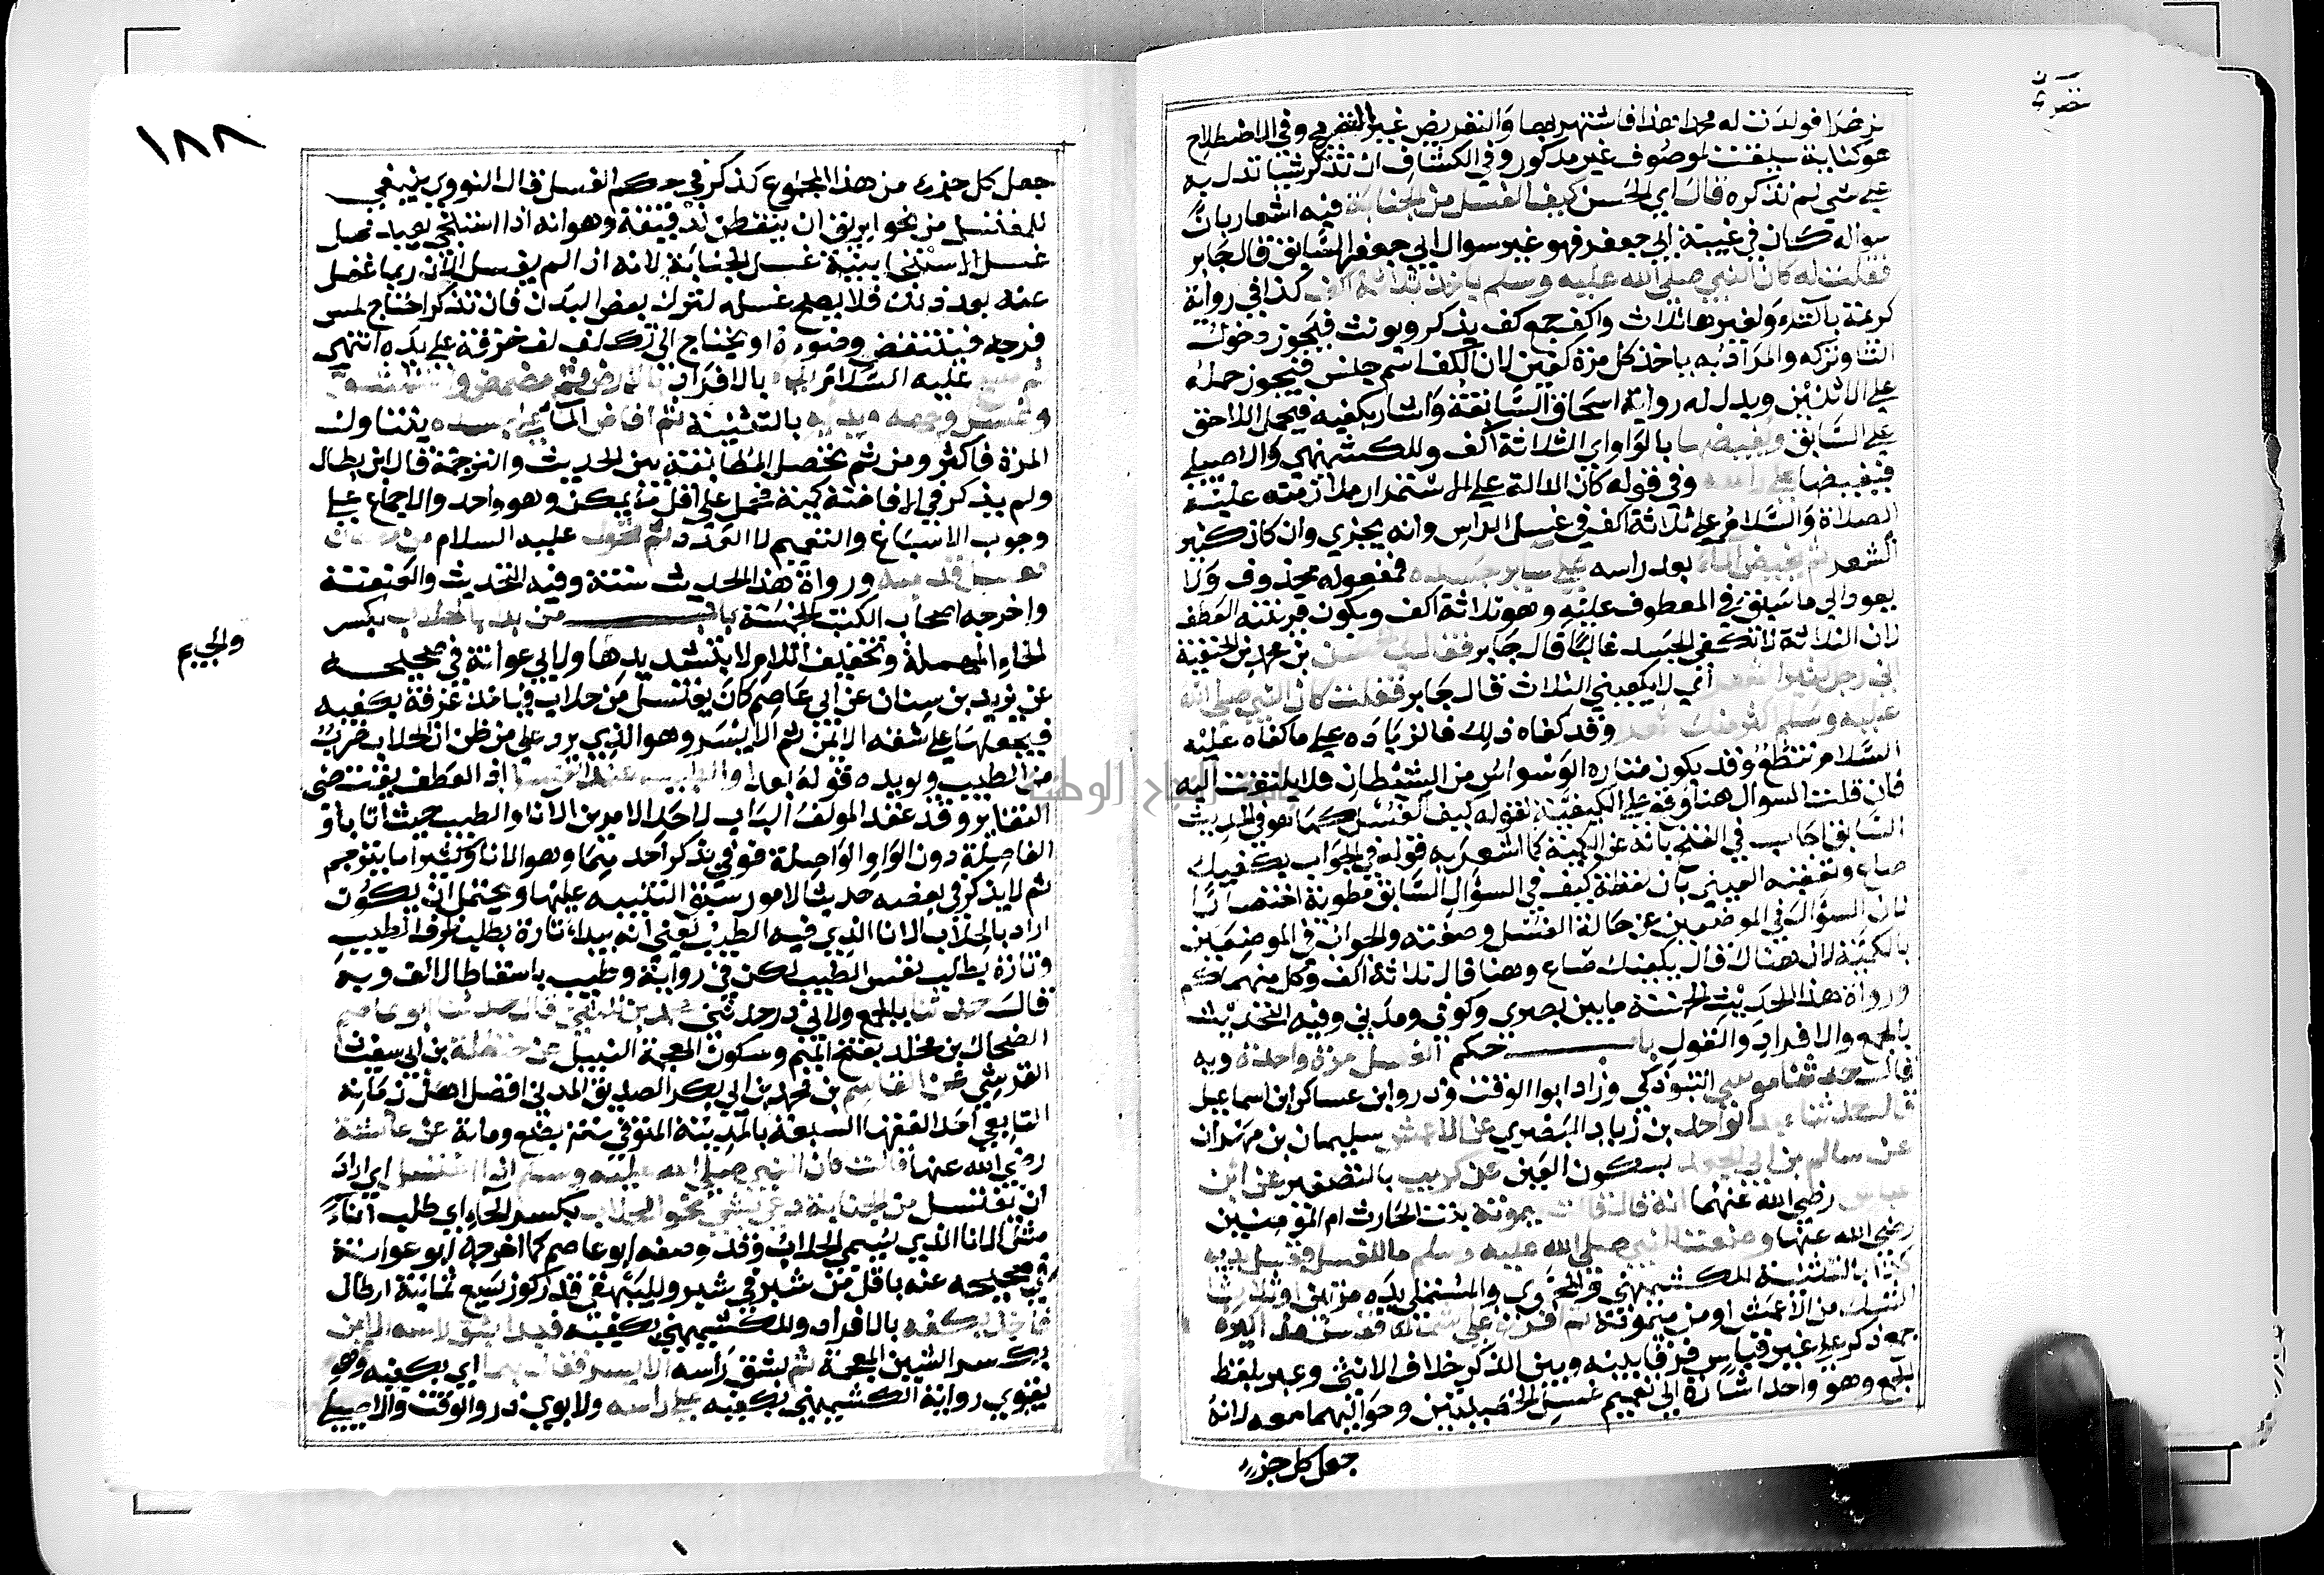 فولدت له محمدا هذا فاشتهر بها والتعريض غير التصريح وفي الاصطلاح
هو كناية سيقت لموصوف غير مذكور وفي الكشاف ان تذكر شيئا تدل به
على شي لم تذكره قال اي الحسن كيف الغسل من الجنابة فيه اشعار بان
سواله كان في غيبة ابي جعفر فهو غير سوال ابي جعفر السابق قال جابر
فقلت له كان النبي صلى الله عليه وسلم ياخذ ثلاثة اكف كذا في رواية
كريمة بالتاء ولغيرها ثلاث واكف جمع كف يذكر ويونث فيجوز دخول
التا وتركه والمراد به ياخذ كل مرة كفين لان الكف اسم جنس فيجوز حمله
على الاثنين ويدل له رواية اسحاق السابقة واشار بكفيه فيحمل اللاحق
على السابق ويفيضها بالواو اي الثلاثة اكف وللكشميهني والاصيلي
فيفيضها على راسه وفي قوله كان الدالة على الاستمرار ملازمته عليه
الصلاة والسلام على ثلاثة اكف في غسل الراس وانه يجزي وان كان كثير
الشعر ثم يفيض الماء بعد راسه على ساير جسده فمفعوله محذوف ولا
يعود الى ما سبق في المعطوف عليه وهو ثلاثة اكف ويكون قرينته العطف
لان الثلاثة لا تكفي الجسد غالبا قال جابر فقال لي الحسن بن محمد بن الحنفية
اني رجل كثير الشعر اي لا يكفيني الثلاث قال جابر فقلت كان النبي صلى الله
عليه وسلم اكثر منك شعرا وقد كفاه ذلك فالزيادة على ما كفاه عليه
السلام تنطع وقد يكون مثاره الوسواس من الشيطان فلا يلتفت اليه
فان قلت السوال هنا وقع على الكيفية لقوله كيف الغسل كما هو في الحديث
السابق اجاب في الفتح بانه عن الكمية كما اشعر به قوله في الجواب يكفيك
صاع وتعقبه العيني بان لفظة كيف في السؤال السابق مطوية اختصارا
لان السؤال في الموضعين عن حالة الغسل وصفته والجواب في الموضعين
بالكمية لان هناك قال يكفيك صاع وهنا قال ثلاثة اكف وكل منهما كم
ورواة هذا الحديث الخمسة ما بين بصري وكوفي ومدني وفيه التحديث
بالجمع والافراد والقول باب حكم الغسل مرة واحدة وبه
قال حدثنا موسى التبوذكي وزاد ابوا الوقت وذر وابن عساكر ابن اسماعيل
قال حدثنا عبد الواحد بن زياد البصري عن الاعمش سليمان بن مهران
عن سالم بن ابي الجعد بسكون العين عن كريب بالتصغير عن ابن
عباس رضي الله عنهما انه قال قالت ميمونة بنت الحارث ام المؤمنين
رضي الله عنها وضعت للنبي صلى الله عليه وسلم ما للغسل فغسل يديه
كذا بالتثنية للكشميهني وللحموي والمستملي يده مرتين او ثلاثا
الشك من الاعمش او من ميمونة ثم افرغ على شماله فغسل مذاكيره
جمع ذكر على غير قياس فرقا بينه وبين الذكر خلاف الانثى وعبر بلفظ
الجمع وهو واحد اشارة الى تعميم غسل الخصيتين وحواليهما معه لانه
جعل كل جزء
١٨٨
جعل كل جزء من هذا المجموع كذكر في حكم الغسل قال النووي ينبغي
للمغتسل من نحو ابريق ان يتفطن لدقيقة وهو انه اذا استنجى يعيد محل
غسل الاستنجا بنية غسل الجنابة لانه اذا لم يغسل الان ربما غفل
عنه بعد ذلك فلا يصح غسله لترك بعض البدن فان تذكر احتاج لمس
فرجه فينتقض وضوءه او يحتاج الى تكلف لف خرقة على يده انتهى
ثم مسح عليه السلام يده بالافراد بالارض ثم مضمض واستنشق
وغسل وجهه ويديه بالتثنية ثم افاض الماء على جسده يتناول
المرة فاكثر ومن ثم تحصل المطابقة بين الحديث والترجمة قال ابن بطال
ولم يذكر في الافاضة كمية فحمل على اقل ما يمكن وهو واحد والاجماع على
وجوب الاسباغ والتعميم لا العدد ثم تحول عليه السلام من مكانه
فغسل قدميه ورواة هذا الحديث ستة وفيه التحديث والعنعنة
واخرجه اصحاب الكتب الخمسة باب من بدا بالحلاب بكسر
الحاء المهملة وتخفيف اللام لا بتشديدها ولابي عوانة في صحيحه
والجيم
عن يزيد بن سنان عن ابي عاصم كان يغتسل من حلاب فياخذ غرفة بكفيه
فيجعلها على شقه الايمن ثم الايسر وهو الذي يرد على من ظن ان الحلاب ضرب
من الطيب ويويده قوله بعد او الطيب عند الغسل اذ العطف يقتضي
التغاير وقد عقد المولف الباب لاحد الامرين الانا والطيب حيث اتا باو
الفاصلة دون الواو الواصلة فوفى بذكر احد منهما وهو الانا وكثيرا ما يترجم
ثم لا يذكر في بعضه حديثا لامور سبق التنبيه عليها ويحتمل ان يكون
اراد بالحلاب الانا الذي فيه الطيب يعني انه يبدا تارة بطلب ظرف الطيب
وتارة بطلب نفس الطيب لكن في رواية وطيب باسقاط الالف وبه
قال حدثنا بالجمع ولابي ذر حدثني محمد بن المثنى قال حدثنا ابو عاصم
الضحاك بن مخلد بفتح الميم وسكون المعجمة النبيل عن حنظلة بن ابي سفيان
القرشي عن القاسم بن محمد بن ابي بكر الصديق المدني افضل اهل زمانه
التابعي احد الفقها السبعة بالمدينة المتوفى سنة بضع ومائة عن عائشة
رضي الله عنها قالت كان النبي صلى الله عليه وسلم اذا اغتسل اي اراد
ان يغتسل من الجنابة دعى بشي نحو الحلاب بكسر الحاء اي طلب اناء
مثل الانا الذي يسمى الحلاب وقد وصفه ابو عاصم كما اخرجه ابو عوانة
في صحيحه عنه باقل من شبر في شبر وللبيهقي قدر كوز يسع ثمانية ارطال
فاخذ بكفه بالافراد وللكشميهني بكفيه فبدا بشق راسه الايمن
بكسر الشين المعجمة ثم بشق راسه الايسر فقال بهما اي بكفيه وهو
يقوي رواية الكشميهني بكفيه على راسه ولابوي ذر والوقت والاصيلي